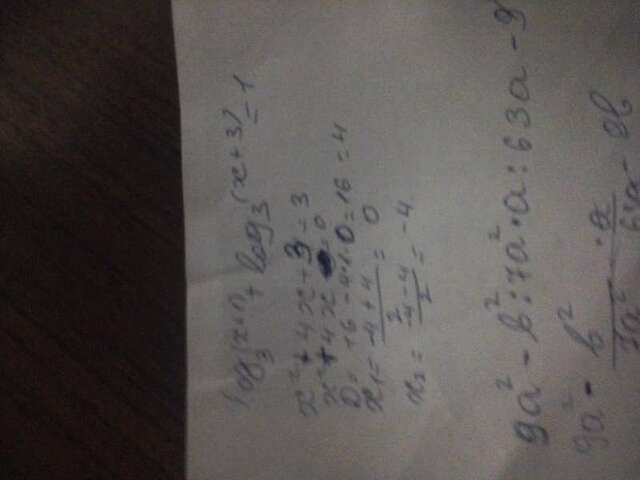 log₃(x+1) + log₃(x+3) = 1
x² + 4x + 3 = 3
x² + 4x = 0
D = 16 - 4·1·0 = 16 = 4
x₁ = (-4+4)/2 = 0
x₂ = (-4-4)/2 = -4
9a² - b² : 7a² · a : 63a - 9
9a² - b²/7a² · a/63a - 9b